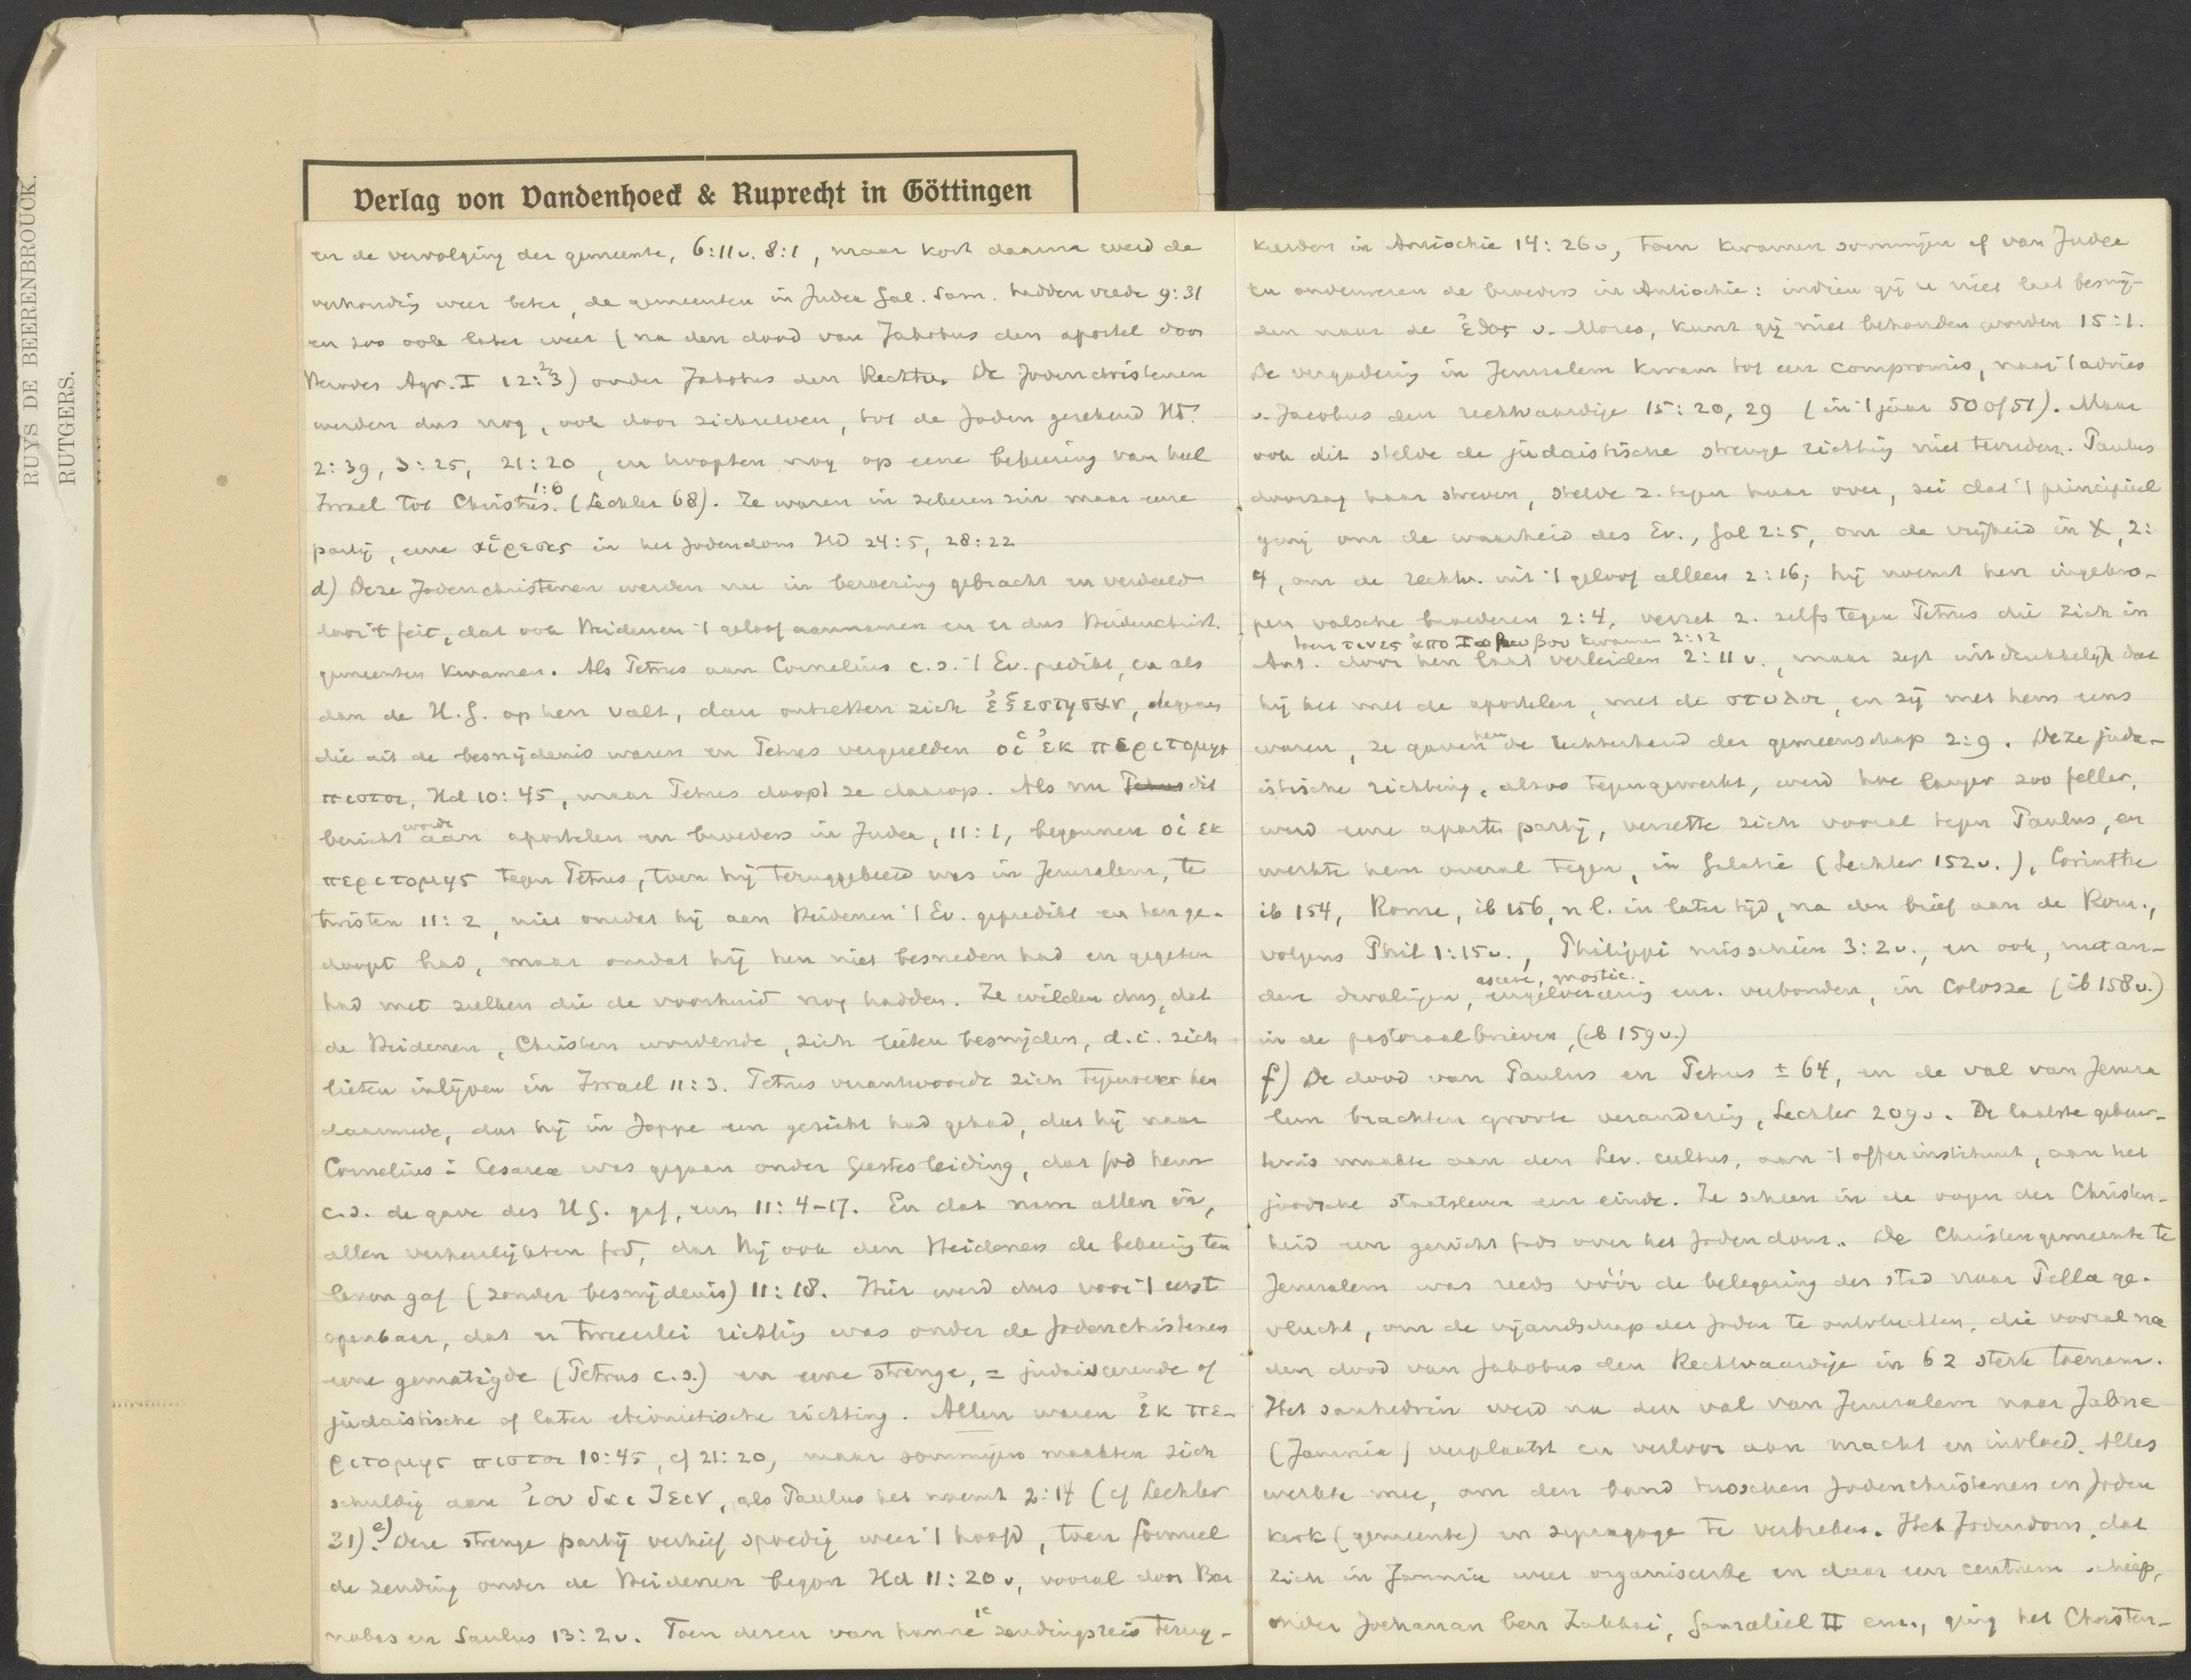 RUYS DE BEERENBROUCK.
RUTGERS.
Verlag von Vandenhoeck & Ruprecht in Göttingen
en de vervolging der gemeente, 6:11v. 8:1, maar kort daarna werd de
verhoudig weer beter, de gemeenten in Judea Gal. Sam. hadden vrede 9:31
en zoo ook later weer (na den dood van Jakobus den apostel door
Herodes Agr. I 12:2,3) onder Jakobus den Rechtv. De Jodenchristenen
werden dus nog, ook door zichzelven, tot de Joden gerekend Hd.
2:39, 3:25, 21:20, en hoopten nog op eene bekeering van heel
Israel tot Christus. 1:6 (Lechler 68). Ze waren in zekeren zin maar eene
partij, eene αἵρεσις in het Jodendom Hd 24:5, 28:22
d) Deze Jodenchristenen werden nu in beroering gebracht en verdeeld
door 't feit, dat ook Heidenen 't geloof aannamen en er dus Heidenchrist.
gemeenten kwamen. Als Petrus aan Cornelius c.s. 't Ev. predikt, en als
dan de H.G. op hen valt, dan ontzetten zich ἐξεστησαν, degenen
die uit de besnijdenis waren en Petrus vergezelden οἱ ἐκ περιτομης
πιστοι, Hd 10:45, maar Petrus doopt ze daarop. Als nu Petrus dit
bericht werd aan apostelen en broeders in Judea, 11:1, begonnen οἱ εκ
περιτομης tegen Petrus, toen hij teruggekeerd was in Jeruzalem, te
twisten 11:2, niet omdat hij aan Heidenen 't Ev. gepredikt en hen ge-
doopt had, maar omdat hij hen niet besneden had en gegeten
had met zulken die de voorhuid nog hadden. Ze wilden dus, dat
de Heidenen, Christen wordende, zich lieten besnijden, d.i. zich
lieten inlijven in Israel 11:3. Petrus verantwoordde zich tegenover hen
daarmede, dat hij in Joppe een gezicht had gehad, dat hij naar
Cornelius i Cesarea was gegaan onder Geestesleiding, dat God hem
c.s. de gave des H.G. gaf, enz 11:4-17. En dat nam allen in,
allen verheerlijkten God, dat Hij ook den Heidenen de bekeerig ten
leven gaf (zonder besnijdenis) 11:18. Hier werd dus voor 't eerst
openbaar, dat er tweeërlei richtig was onder de Jodenchristenen
eene gematigde (Petrus c.s.) en eene strenge, = judaiseerende of
judaistische of later ebionietische richting. Allen waren ἐκ πε-
ριτομης πιστοι 10:45, cf 21:20, maar sommigen maakten zich
schuldig aan ἰουδαιζειν, als Paulus het noemt 2:14 (cf Lechler
31). e) Deze strenge partij verhief spoedig weer 't hoofd, toen formeel
de zending onder de Heidenen begon Hd 11:20v, vooral door Bar
nabas en Saulus 13:2v. Toen dezen van hunne 1e zendingsreis terug-
keerden in Antiochie 14:26v, toen kwamen sommigen af van Judea
en onderwezen de broeders in Antiochie: indien gij u niet laat besnij-
den naar de ἐθος v. Mozes, kunt gij niet behouden worden 15:1.
De vergaderig in Jeruzalem kwam tot een compromis, naar 't advies
v. Jacobus den rechtvaardige 15:20, 29 (in 't jaar 50 of 51). Maar
ook dit stelde de judaistische strenge richtig niet tevreden. Paulus
doorzag haar streven, stelde z. tegen haar over, zei dat 't principieel
ging om de waarheid des Ev., Gal 2:5, om de vrijheid in X, 2:
4, om de rechtv. uit 't geloof alleen 2:16; hij noemt hen ingekro-
pen valsche broederen 2:4, verzet z. zelfs tegen Petrus die zich in
toen τινες ἀπο Ιακωβου kwamen 2:12
Ant. door hen laat verleiden 2:11v., maar zegt uitdrukkelijk dat
hij het met de apostelen, met de στυλοι, en zij met hem eens
waren, ze gaven hem de rechterhand der gemeenschap 2:9. Deze juda-
istische richting, alzoo tegengewerkt, werd hoe langer zoo feller,
werd eene aparte partij, verzette zich vooral tegen Paulus, en
werkte hem overal tegen, in Galatie (Lechler 152v.), Corinthe
ib 154, Rome, ib 156, n l. in later tijd, na den brief aan de Rom.,
volgens Phil 1:15v., Philippi misschien 3:2v., en ook, met an-
ascese, gnostic.
dere dwalingen, engelvereerig enz. verbonden, in Colosse (ib 158v.)
in de pastoraalbrieven, (ib 159v.)
f) De dood van Paulus en Petrus ± 64, en de val van Jeruza
lem brachten groote veranderig, Lechler 209v. De laatste gebeur-
tenis maakte aan den Lev. cultus, aan 't offerinstituut, aan het
joodsche staatsleven een einde. Ze scheen in de oogen der Christen-
heid een gericht Gods over het Jodendom. De Christengemeente te
Jeruzalem was reeds vóór de belegering der stad naar Pella ge-
vlucht, om de vijandschap der Joden te ontvluchten, die vooral na
den dood van Jakobus den Rechtvaardige in 62 sterk toenam.
Het sanhedrin werd na den val van Jeruzalem naar Jabne
(Jamnia) verplaatst en verloor aan macht en invloed. Alles
werkte mee, om den band tusschen Jodenchristenen en Joden
kerk (gemeente) en synagoge te verbreken. Het Jodendom, dat
zich in Jamnia weer organiseerde en daar een centrum schiep,
onder Jochanan ben Zakkai, Gamaliel II enz., ging het Christen-